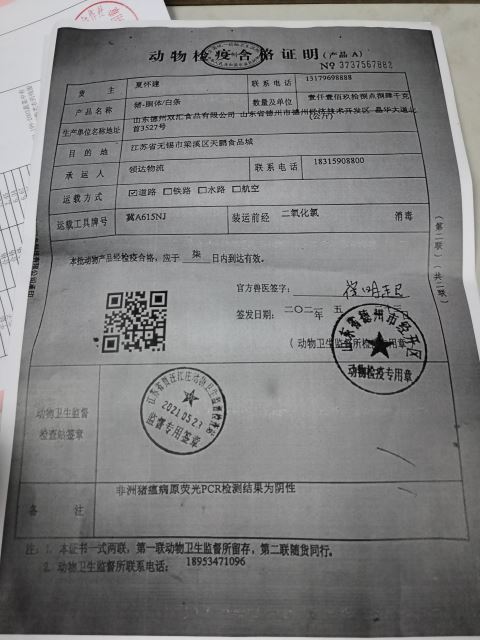 动物检疫合格证明(产品 A)
№ 3737567882
货主 夏怀建 联系电话 13179698888
产品名称 猪-胴体/白条 数量及单位 壹仟壹佰玖拾捌点捌肆千克(公斤)
生产单位名称地址 山东德州双汇食品有限公司 山东省德州市德州经济技术开发区 晶华大道北首3527号
目的地 江苏省无锡市梁溪区天鹏食品城
承运人 领达物流 联系电话 18315908800
运载方式 ☑道路 □铁路 □水路 □航空
运载工具牌号 冀A615NJ 装运前经 二氧化氯 消毒
本批动物产品经检疫合格，应于 柒 日内到达有效。
官方兽医签字：
签发日期： 二〇二一年 五
(动物卫生监督所检疫专用章
山东省德州市经开区
动物检疫专用章
动物卫生监督检查站签章
2021.05.23
监督专用签章
备注 非洲猪瘟病原荧光PCR检测结果为阴性
注：1. 本证书一式两联，第一联动物卫生监督所留存，第二联随货同行。
2. 动物卫生监督所联系电话： 18953471096
(第二联)(共二联)